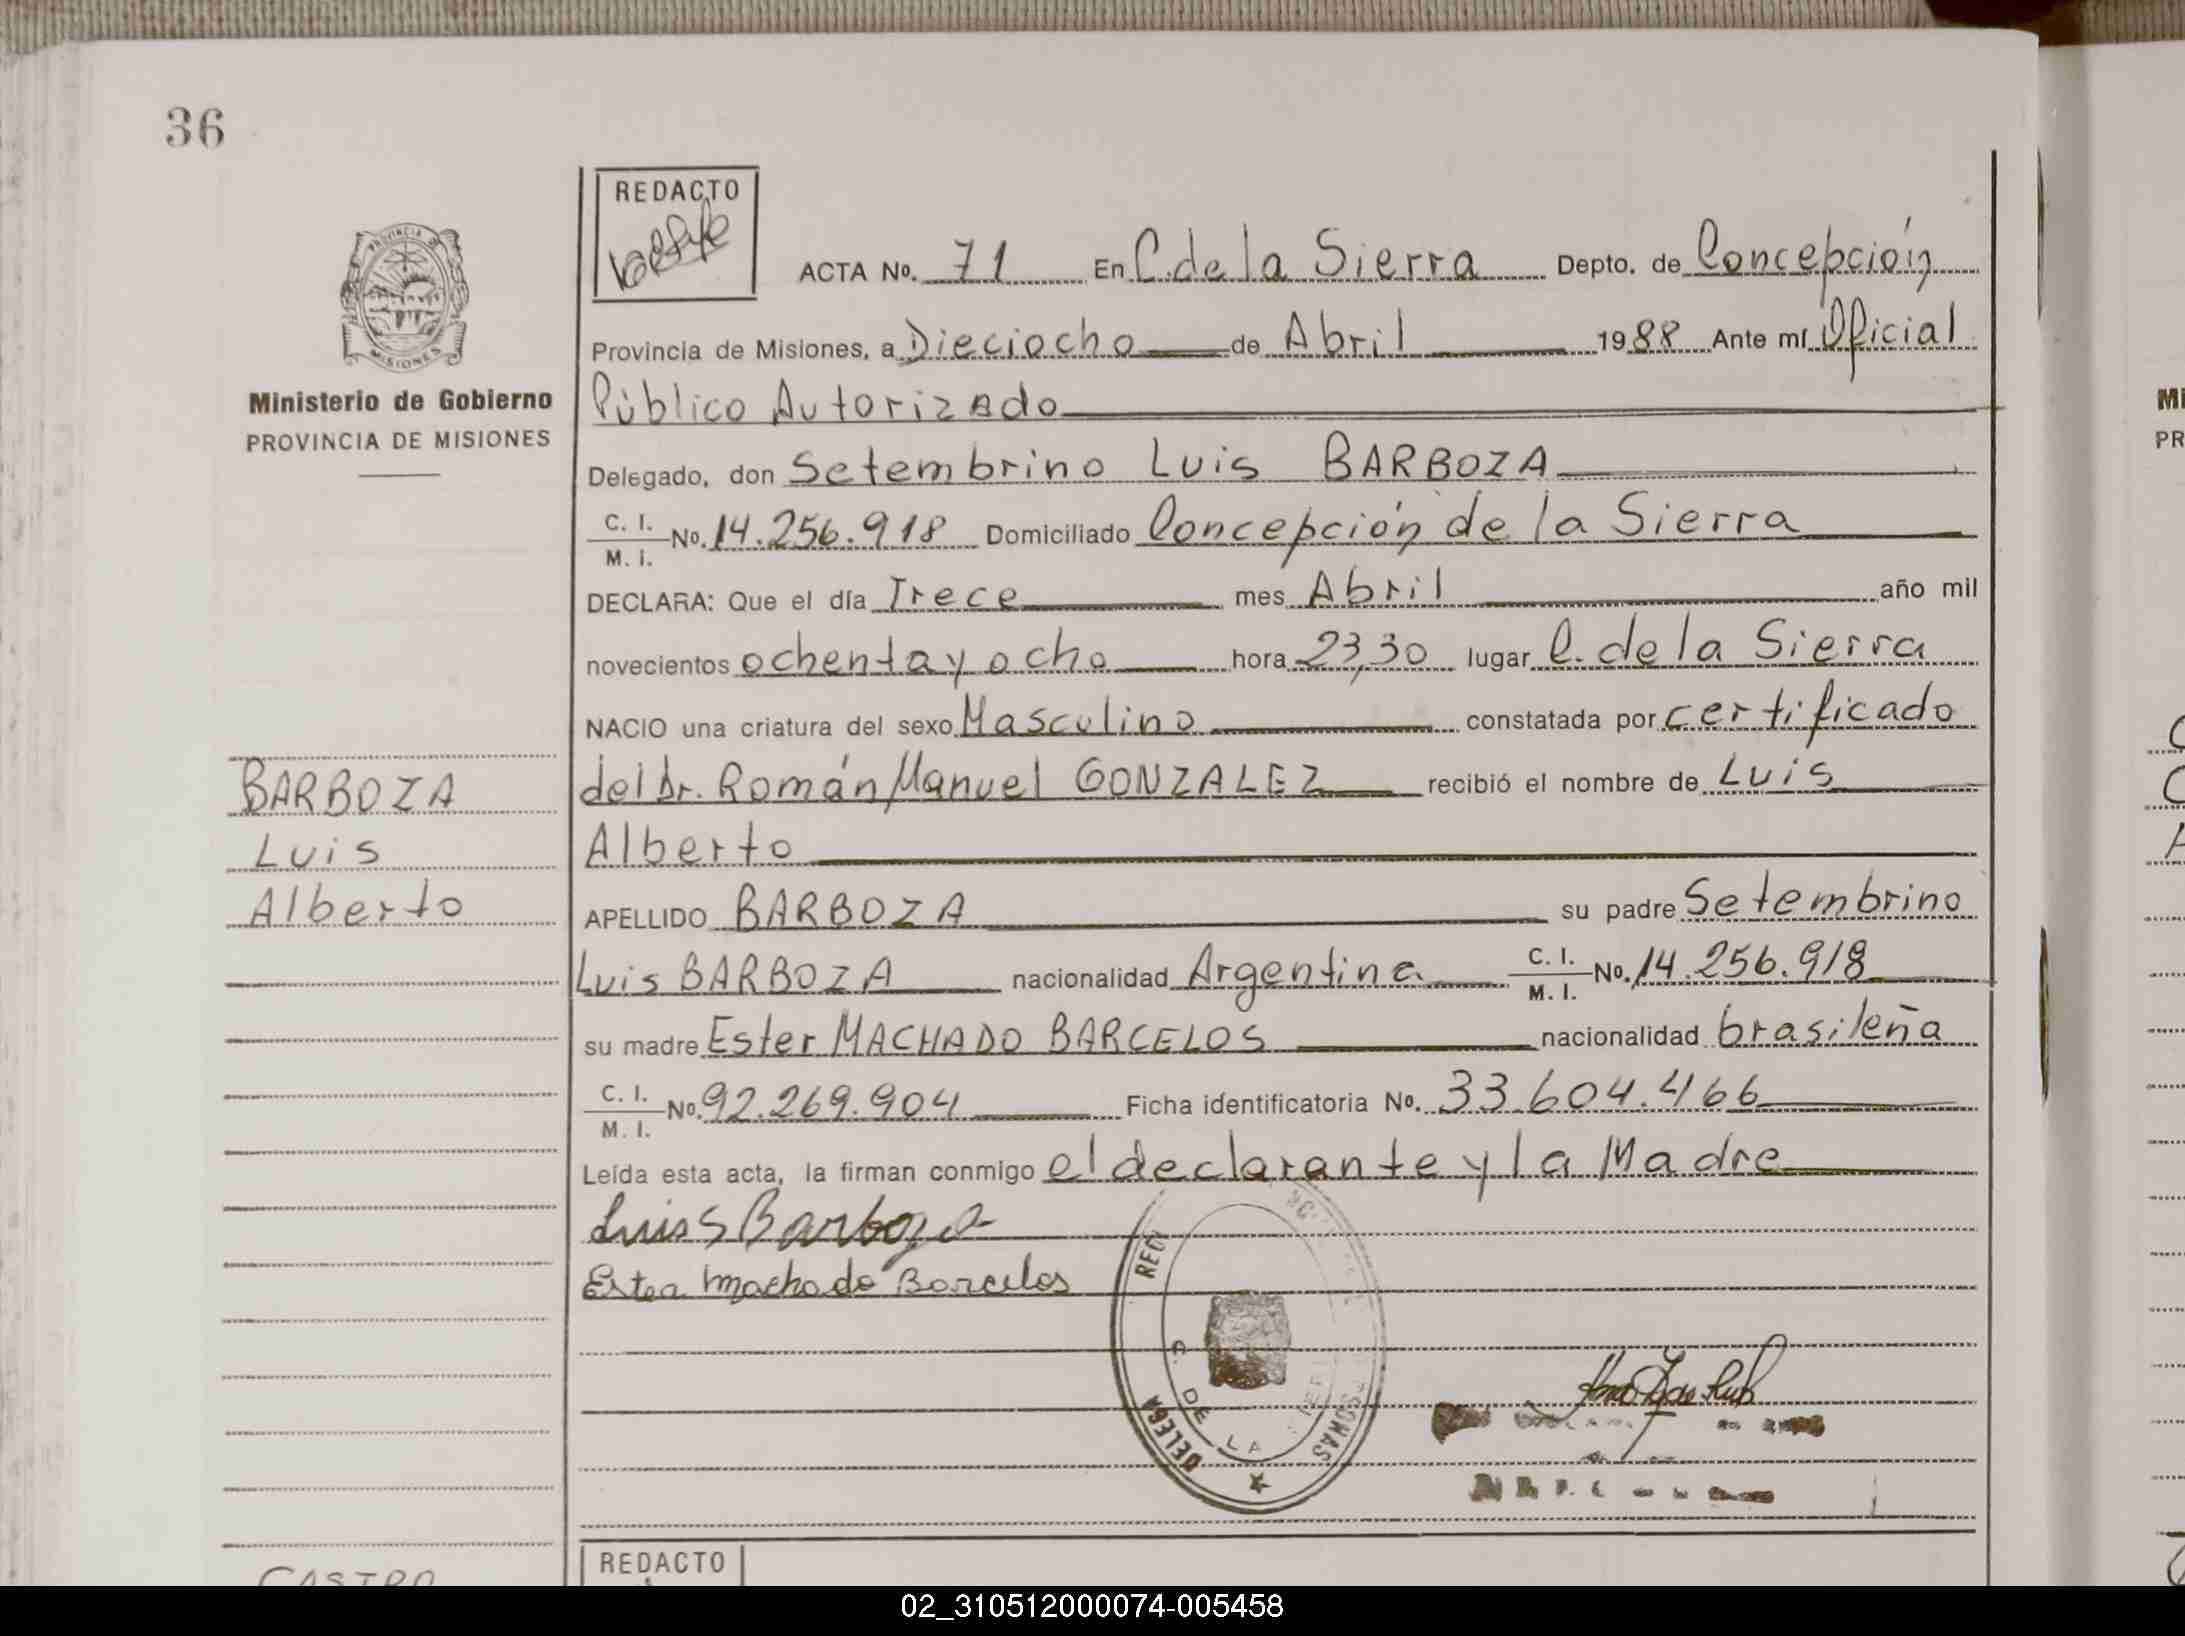 36
REDACTO
PROVINCIA DE
MISIONES
Ministerio de Gobierno
PROVINCIA DE MISIONES
ACTA No. 71 En C. de la Sierra Depto. de Concepción
Provincia de Misiones, a Dieciocho de Abril 1988 Ante mí Oficial
Público Autorizado
Delegado, don Setembrino Luis BARBOZA
C. I.
M. I. No. 14.256.918 Domiciliado Concepción de la Sierra
DECLARA: Que el día Trece mes Abril año mil
novecientos ochenta y ocho hora 23,30 lugar C. de la Sierra
NACIO una criatura del sexo Masculino constatada por certificado
del Dr. Román Manuel GONZALEZ recibió el nombre de Luis
Alberto
APELLIDO BARBOZA su padre Setembrino
Luis BARBOZA nacionalidad Argentina C. I. M. I. No. 14.256.918
su madre Ester MACHADO BARCELOS nacionalidad brasileña
C. I.
M. I. No. 92.269.904 Ficha identificatoria No. 33.604.466
Leída esta acta, la firman conmigo el declarante y la Madre
Luis S Barboza
Ester Machado Barcelos
BARBOZA
Luis
Alberto
C. DE LA
REDACTO
CASTRO
Mi
PR
02_310512000074-005458